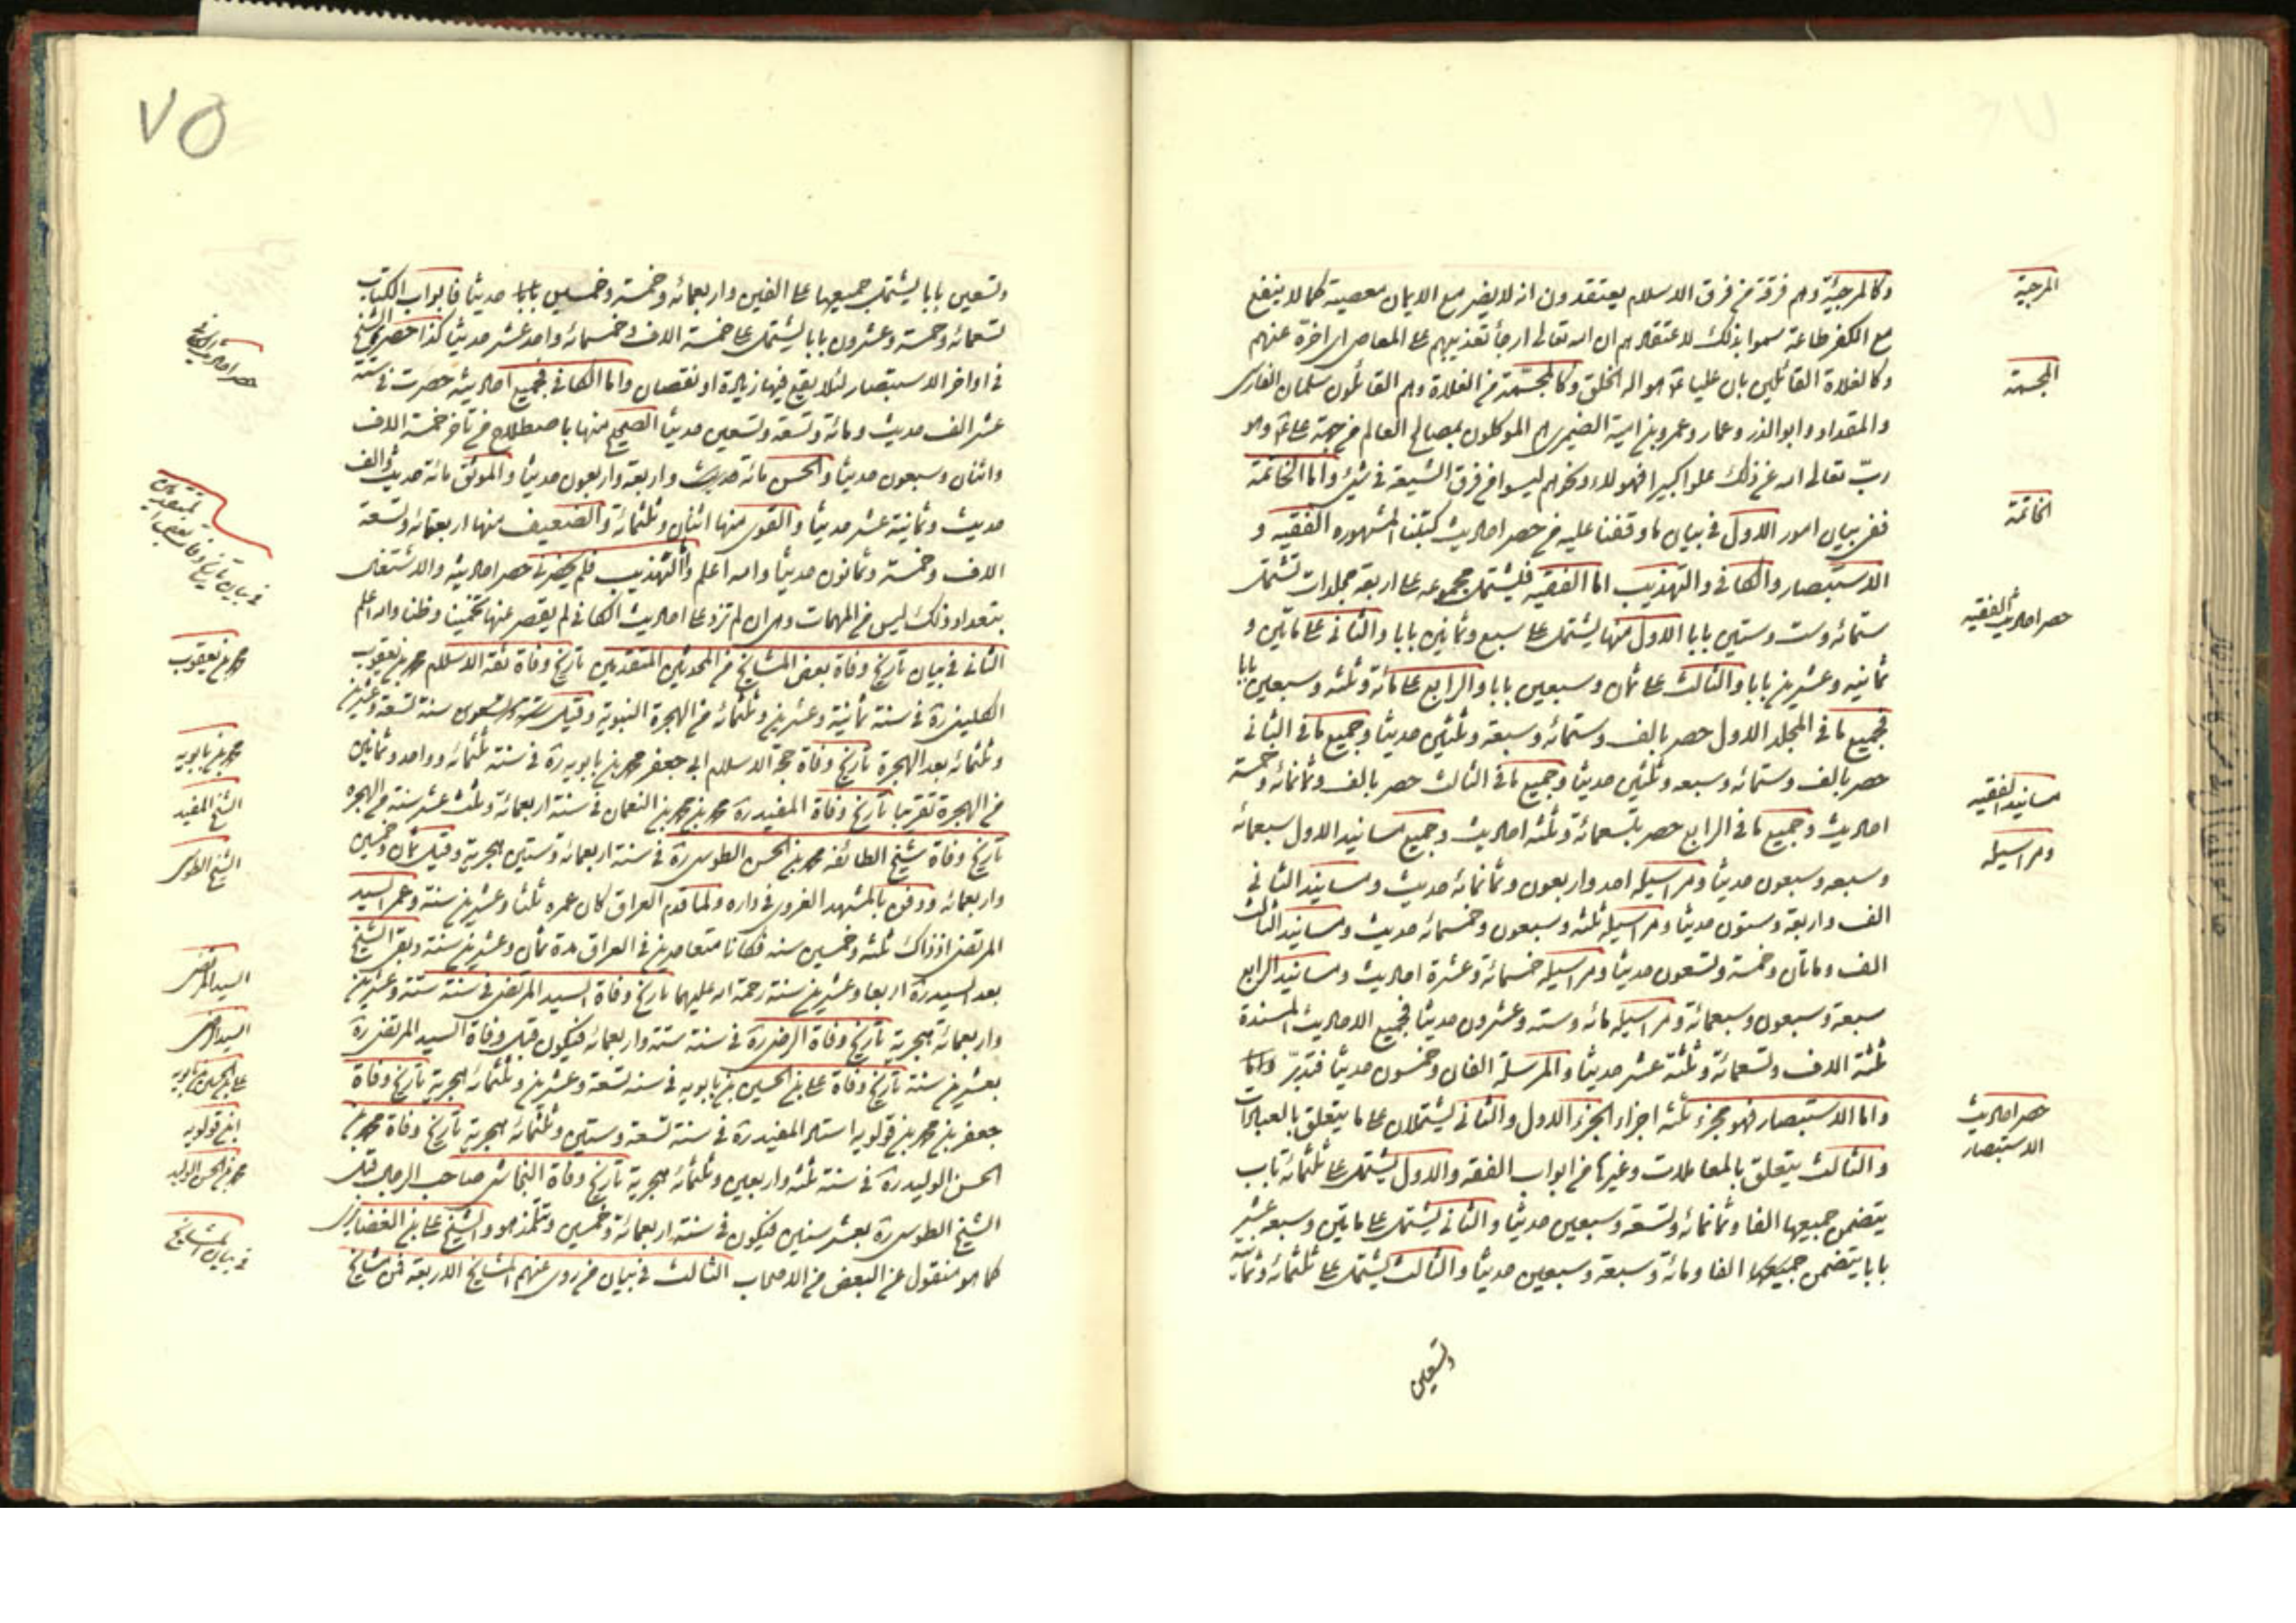 وكالمرجئة وهم فرقة من فرق الاسلام يعتقدون انه لا يضر مع الايمان معصية كما لا ينفع
مع الكفر طاعة سموا بذلك لاعتقادهم ان الله تعالى ارجأ تعذيبهم على المعاصي اي اخره عنهم
وكالغلاة القائلين بان عليا ع هو اله الخلق وكالمجسمة من الغلاة وهم القائلون سلمان الفارسي
والمقداد وابو الذر وعمار وعمرو بن امية الضميري هم الموكلون بمصالح العالم من جهة علي ع وهو
رب تعالى الله عن ذلك علوا كبيرا فهولاء ونحوهم ليسوا من فرق الشيعة في شيء واما الخاتمة
ففي بيان امور الاول في بيان ما وقفنا عليه من حصر احاديث كتبنا المشهوره الفقيه و
الاستبصار والكافي والتهذيب اما الفقيه فليشتمل مجموعه على اربعة مجلدات تشتمل
ستمائه وست وستين بابا الاول منها يشتمل على سبع وثمانين بابا والثاني على مائتين و
ثمانيه وعشرين بابا والثالث على ثمان وسبعين بابا والرابع على مائة وثلثه وسبعين بابا
فجميع ما في المجلد الاول حصر بالف وستمائه وسبعة وثلثين حديثا وجميع ما في الثاني
حصر بالف وستمائه وسبعه وثلثين حديثا وجميع ما في الثالث حصر بالف وثمانمائه وخمسة
احاديث وجميع ما في الرابع حصر بتسعمائة وثلثه احاديث وجميع مسانيد الاول سبعمائه
وسبعه وسبعون حديثا ومراسيله احد واربعون وثمانمائه حديث ومسانيد الثاني
الف واربعة وستون حديثا ومراسيله ثلثه وسبعون وخمسمائه حديث ومسانيد الثالث
الف ومائتان وخمسة وتسعون حديثا ومراسيله خمسمائة وعشرة احاديث ومسانيد الرابع
سبعة وسبعون وسبعمائة ومراسيله مائه وسته وعشرون حديثا فجميع الاحاديث المسندة
ثلثة الاف وتسعمائة وثلثة عشر حديثا والمرسلة الفان وخمسون حديثا فتدبر واما
واما الاستبصار فهو مجزء ثلثه اجزاء الجزء الاول والثاني يشتملان على ما يتعلق بالعبادات
والثالث يتعلق بالمعاملات وغيرها من ابواب الفقه والاول يشتمل على ثلثمائة باب
يتضمن جميعها الفا وثمانمائه وتسعة وسبعين حديثا والثاني يشتمل على مائتين وسبعه عشر
بابا يتضمن جميعها الفا ومائة وسبعة وسبعين حديثا والثالث يشتمل على ثلثمائه وثمانية
وتسعين
المرجئة
المجسمة
الخاتمة
حصر احاديث الفقيه
مسانيد الفقيه
ومراسيله
حصر احاديث
الاستبصار
٧٥
وتسعين بابا يشتمل جميعها على الفين واربعمائه وخمسة وخمسين بابا حديثا فابواب الكتاب
تسعمائه وخمسة وعشرون بابا يشتمل على خمسة الاف وخمسمائه واحد عشر حديثا كذا حصره الشيخ
في اواخر الاستبصار لئلا يقع فيها زيادة او نقصان واما الكافي فجميع احاديثه حصرت في ستة
عشر الف حديث ومائة وتسعة وتسعين حديثا الصحيح منها باصطلاح من تأخر خمسة الاف
واثنان وسبعون حديثا والحسن مائة حديث واربعة واربعون حديثا والموثق مائة حديث والف
حديث وثمانية عشر حديثا والقوي منها اثنان وثلثمائة والضعيف منها اربعمائة وتسعة
الاف وخمسة وثمانون حديثا والله اعلم واما التهذيب فلم يحضرني حصر احاديثه والاشتغال
بتعداد ذلك ليس من المهمات وهي ان لم تزد على احاديث الكافي لم يقصر عنها تخمينا وظنا والله اعلم
الثاني في بيان تاريخ وفاة بعض المشايخ من المحدثين المتقدمين تاريخ وفاة ثقة الاسلام محمد بن يعقوب
الكليني ره في سنة ثمانية وعشرين وثلثمائه من الهجرة النبوية وقيل سنة تسعة وعشرين
وثلثمائه بعد الهجرة تاريخ وفاة حجة الاسلام ابي جعفر محمد بن بابويه ره في سنة ثلثمائه وواحد وثمانين
من الهجرة تقريبا تاريخ وفاة المفيد ره محمد بن محمد بن النعمان في سنة اربعمائة وثلث عشر سنة من الهجره
تاريخ وفاة شيخ الطائفه محمد بن الحسن الطوسي ره في سنة اربعمائه وستين هجرية وقيل ثمان وخمسين
واربعمائه ودفن بالمشهد الغروي في داره ولما قدم العراق كان عمره ثلثا وعشرين سنة وعمر السيد
المرتضى اذ ذاك ثلثه وخمسين سنه فكانا متعاصرين في العراق مدة ثمان وعشرين سنة وبقي الشيخ
بعد السيد ره اربعا وعشرين سنة رحمة الله عليهما تاريخ وفاة السيد المرتضى في سنة ستة وعشرين
واربعمائة هجرية تاريخ وفاة الرضي ره في سنة ستة واربعمائه فيكون قبل وفاة السيد المرتضى ره
بعشرين سنة تاريخ وفاة علي بن الحسين بن بابويه في سنه تسعة وعشرين وثلثمائه هجرية تاريخ وفاة
جعفر بن محمد بن قولويه استاد المفيد ره في سنة تسعة وستين وثلثمائه هجرية تاريخ وفاة محمد بن
الحسن الوليد ره في سنة ثلثه واربعين وثلثمائه هجرية تاريخ وفاة النجاشي صاحب الرجال قبل
الشيخ الطوسي ره بعشر سنين فيكون في سنة اربعمائة وخمسين وتلمذ هو والشيخ على بن الغضايري
كما هو منقول عن البعض من الاصحاب الثالث في بيان من روى عنهم المشايخ الاربعة فمن مشايخ
حصر احاديث الكافي
في بيان تاريخ وفات بعض
محمد بن يعقوب
محمد بن بابويه
الشيخ المفيد
الشيخ الطوسي
السيد المرتضى
السيد الرضي
علي بن الحسين بن بابويه
ابن قولويه
محمد بن الحسن الوليد
في بيان المشايخ